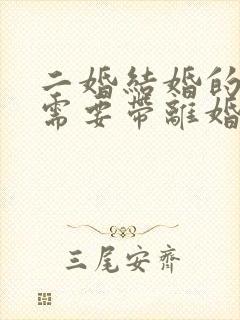 二婚結婚的
需要帶離婚
三尾安齊